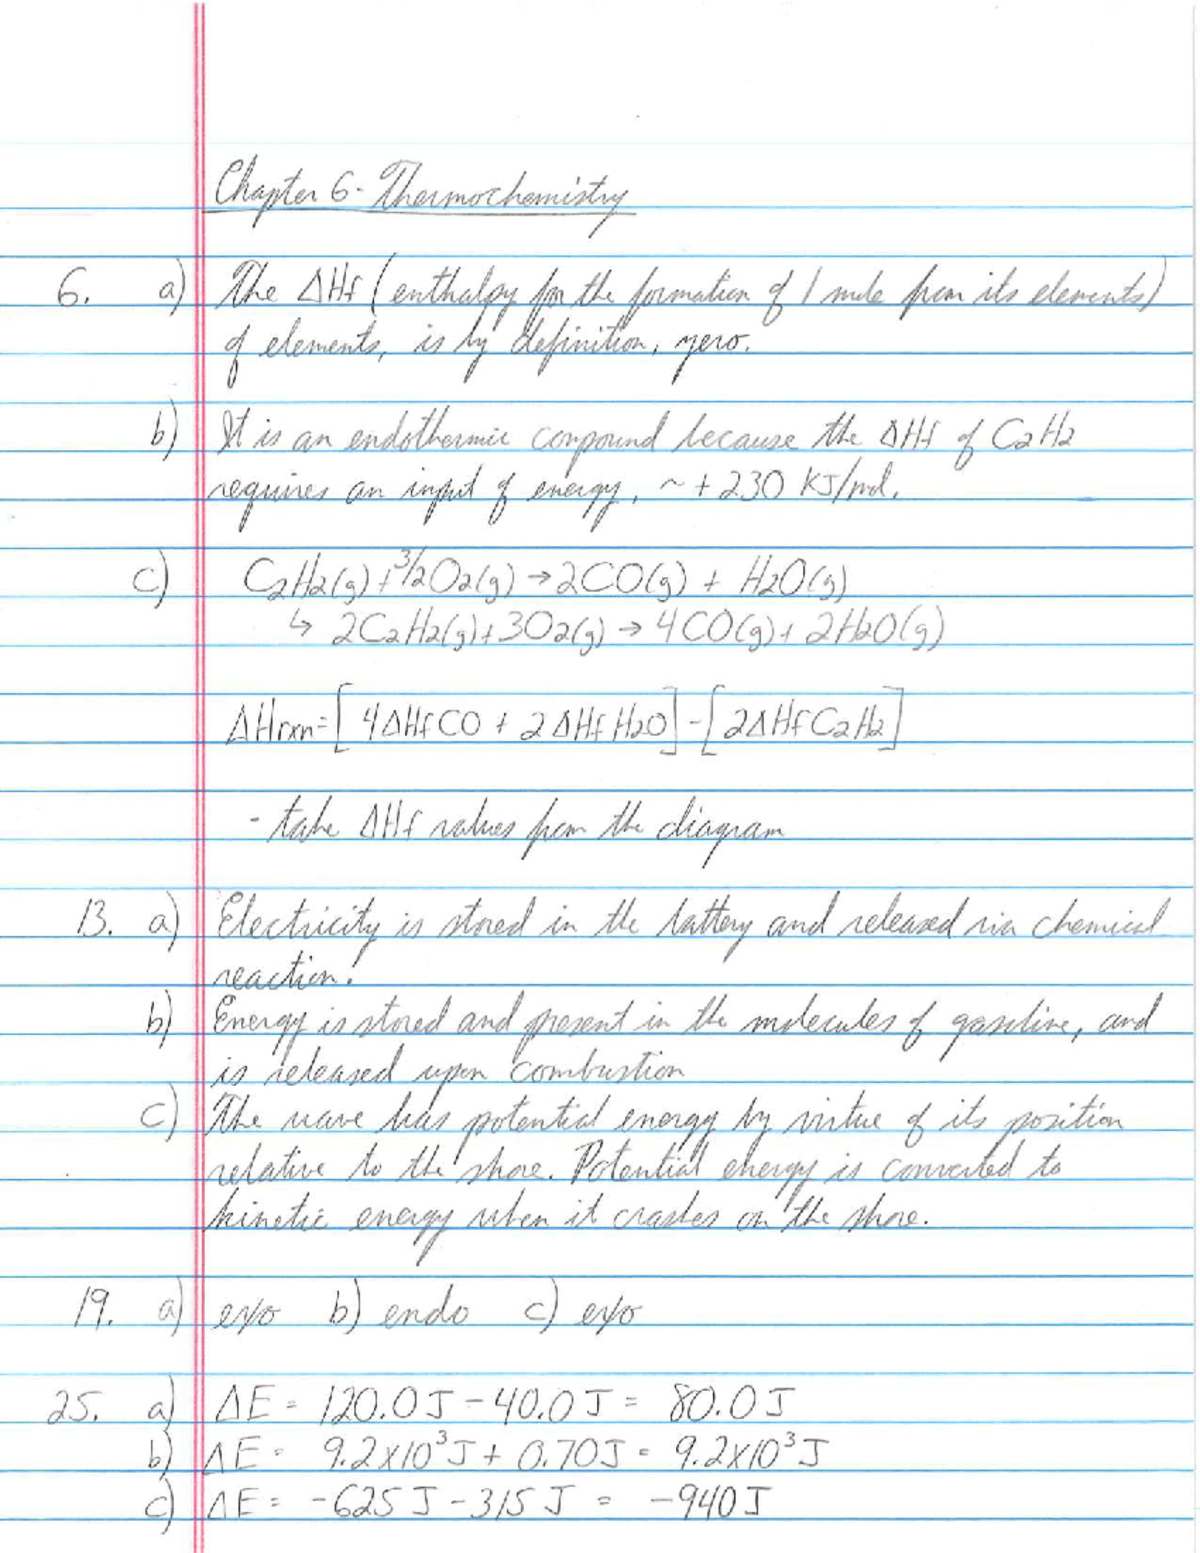 Chapter 6 - Thermochemistry
6. a) The ΔHf (enthalpy for the formation of 1 mole from its elements)
of elements, is by definition, zero.
b) It is an endothermic compound because the ΔHf of C2H2
requires an input of energy, ~ +230 KJ/mol.
c) C2H2(g) + 3/2O2(g) → 2CO(g) + H2O(g)
↳ 2C2H2(g) + 3O2(g) → 4CO(g) + 2H2O(g)
ΔHrxn = [4ΔHfCO + 2ΔHfH2O] - [2ΔHfC2H2]
- take ΔHf values from the diagram
13. a) Electricity is stored in the battery and released via chemical
reaction.
b) Energy is stored and present in the molecules of gasoline, and
is released upon combustion
c) The wave has potential energy by virtue of its position
relative to the shore. Potential energy is converted to
kinetic energy when it crashes on the shore.
19. a) exo b) endo c) exo
25. a) ΔE = 120.0J - 40.0J = 80.0J
b) ΔE = 9.2x10³J + 0.70J = 9.2x10³J
c) ΔE = -625J - 315J = -940J